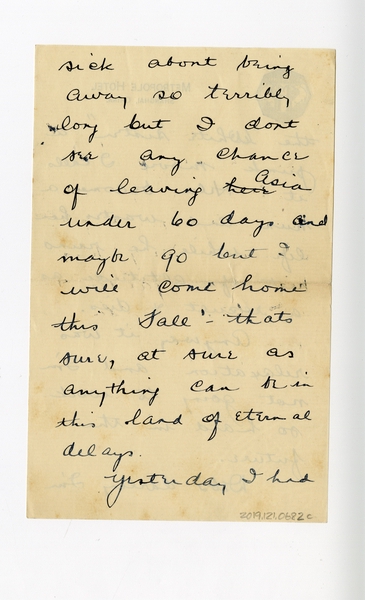 sick about being
away so terribly
long but I dont
see any chance
of leaving here Asia
under 60 days and
maybe 90 but I
will come home
this Fall - thats
sure, at sure as
anything can be in
this land of Eternal
delays.
Yesterday I had
2019.121.0682c